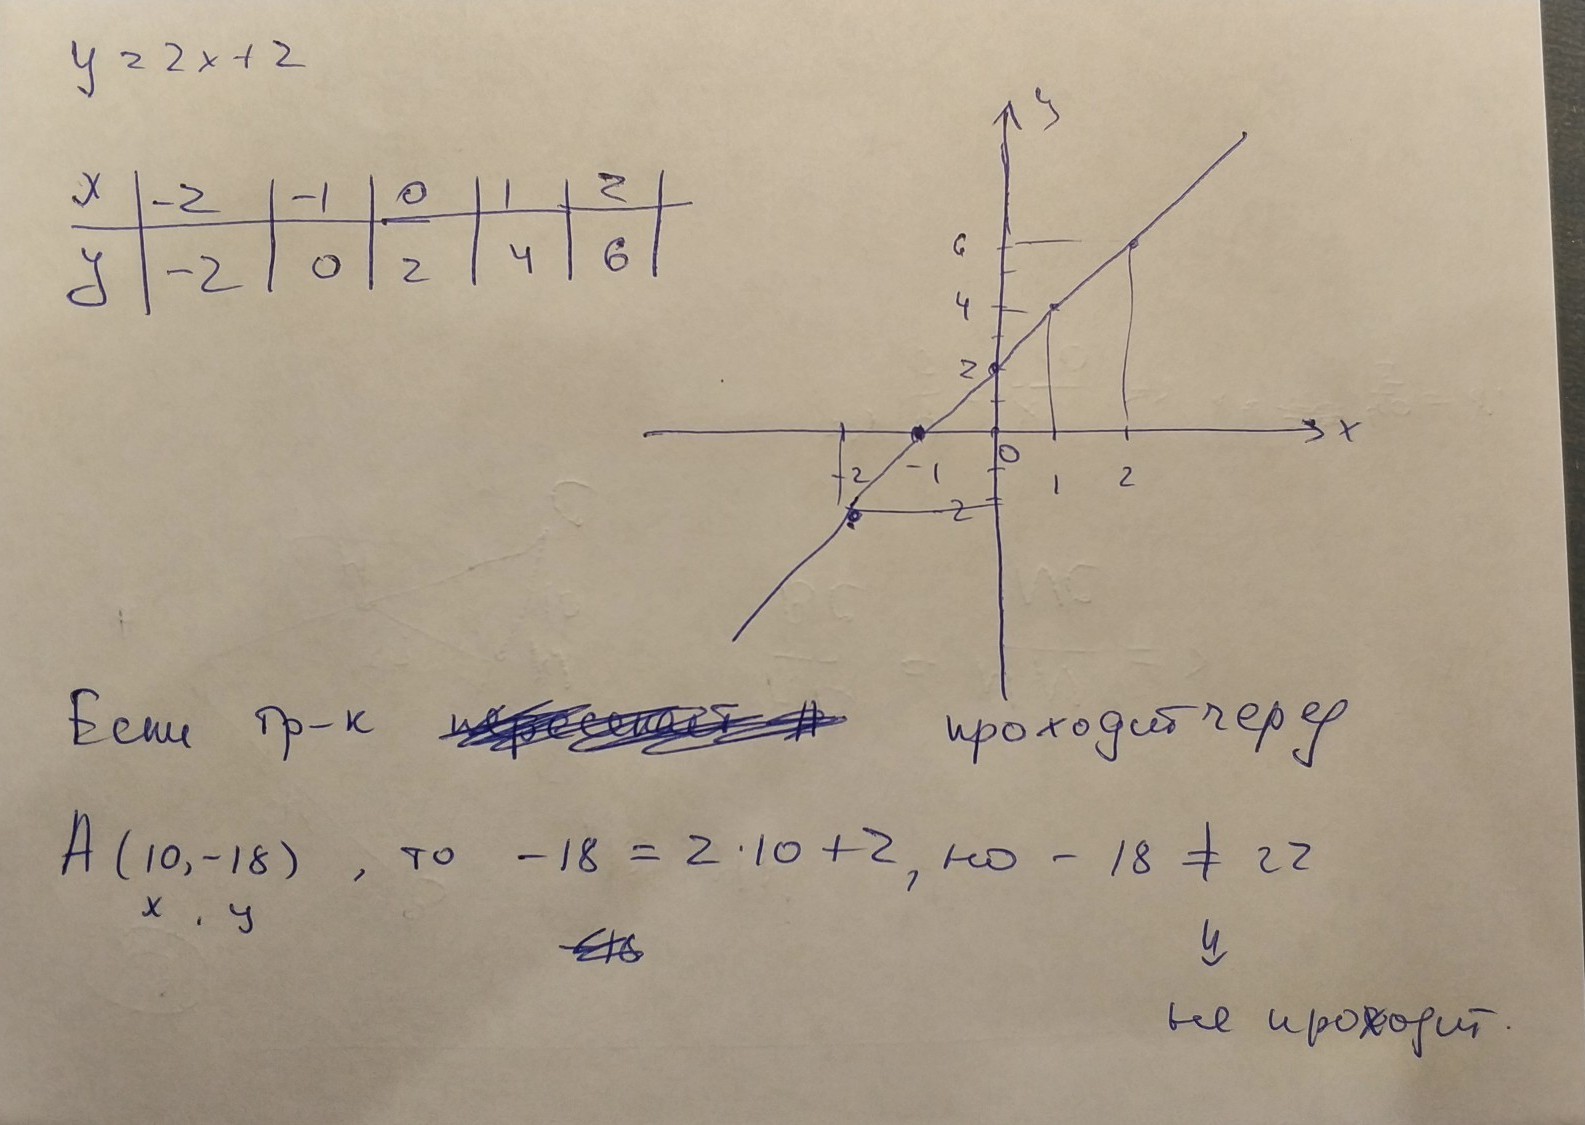 y = 2x + 2
x | -2 | -1 | 0 | 1 | 2 |
y | -2 | 0 | 2 | 4 | 6 |
y
6
4
2
x
-2 -1 0 1 2
-2
Если гр-к проходит через
A (10, -18) , то -18 = 2 · 10 + 2, но - 18 ≠ 22
x , y
⇓
не проходит.